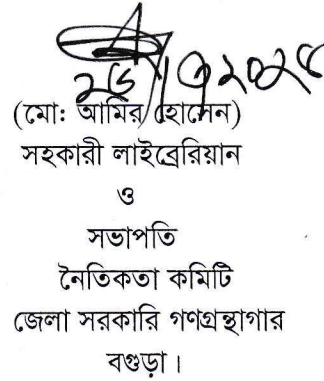 (মো: আমির হোসেন)
সহকারী লাইব্রেরিয়ান
ও
সভাপতি
নৈতিকতা কমিটি
জেলা সরকারি গণগ্রন্থাগার
বগুড়া।